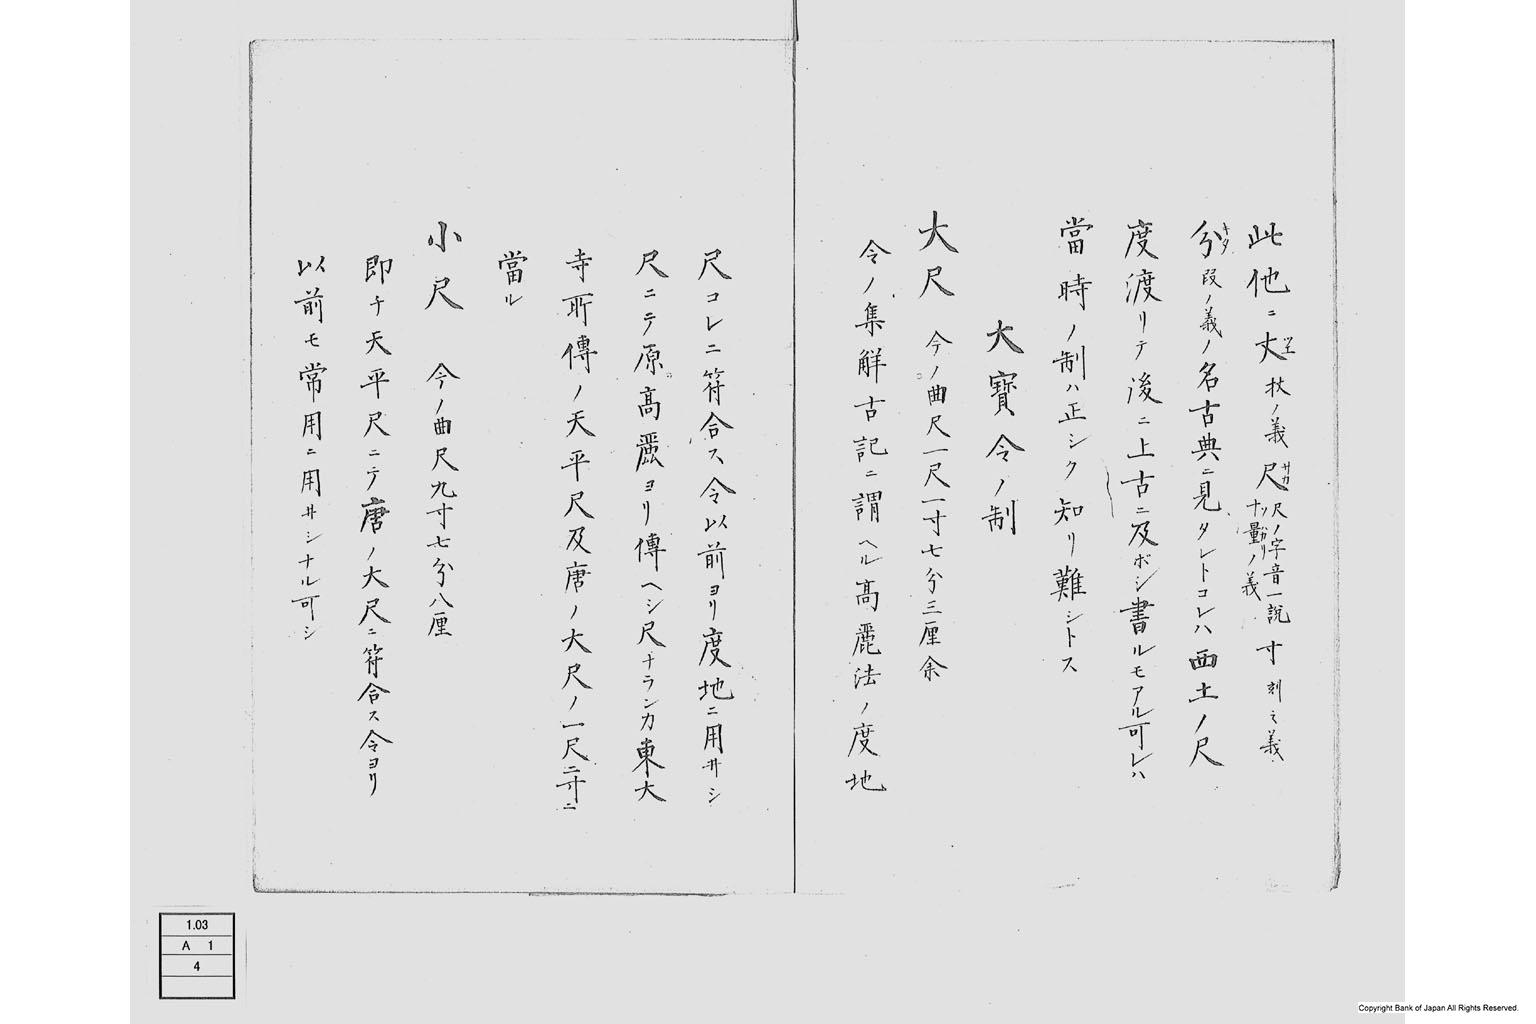 此他ニ丈杖ノ義尺サカ尺ノ字音一説ナリ量ノ義寸刻之義
分キダ段ノ義ノ名古典ニ見タレトコレハ西土ノ尺
度渡リテ後ニ上古ニ及ボシ書ルモアル可レハ
當時ノ制ハ正シク知リ難シトス
大寶令ノ制
大尺 今ノ曲尺一尺一寸七分三厘余
令ノ集解古記ニ謂ヘル高麗法ノ度地
尺コレニ符合ス令以前ヨリ度地ニ用井シ
尺ニテ原高麗ヨリ傳ヘシ尺ナランカ東大
寺所傳ノ天平尺及唐ノ大尺ノ一尺二寸ニ
當ル
小尺 今ノ曲尺九寸七分八厘
即チ天平尺ニテ唐ノ大尺ニ符合ス令ヨリ
以前モ常用ニ用井シナル可シ
1.03
A 1
4
Copyright Bank of Japan All Rights Reserved.